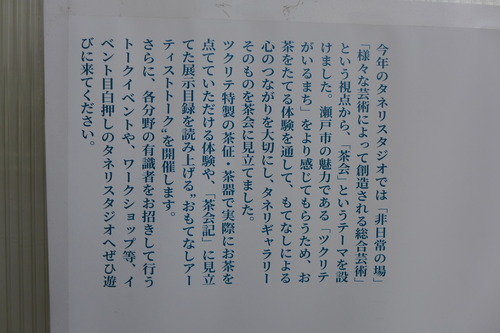 今年のタネリスタジオでは「非日常の場」
「様々な芸術によって創造される総合芸術」
という視点から、「茶会」というテーマを設
けました。瀬戸市の魅力である「ツクリテ
がいるまち」をより感じてもらうため、お
茶をたてる体験を通して、もてなしによる
心のつながりを大切にし、タネリギャラリー
そのものを茶会に見立てました。
ツクリテ特製の茶征・茶器で実際にお茶を
点てていただける体験や、「茶会記」に見立
てた展示目録を読み上げる“おもてなしアー
ティストトーク“を開催します。
さらに、各分野の有識者をお招きして行う
トークイベントや、ワークショップ等、イ
ベント目白押しのタネリスタジオへぜひ遊
びに来てください。